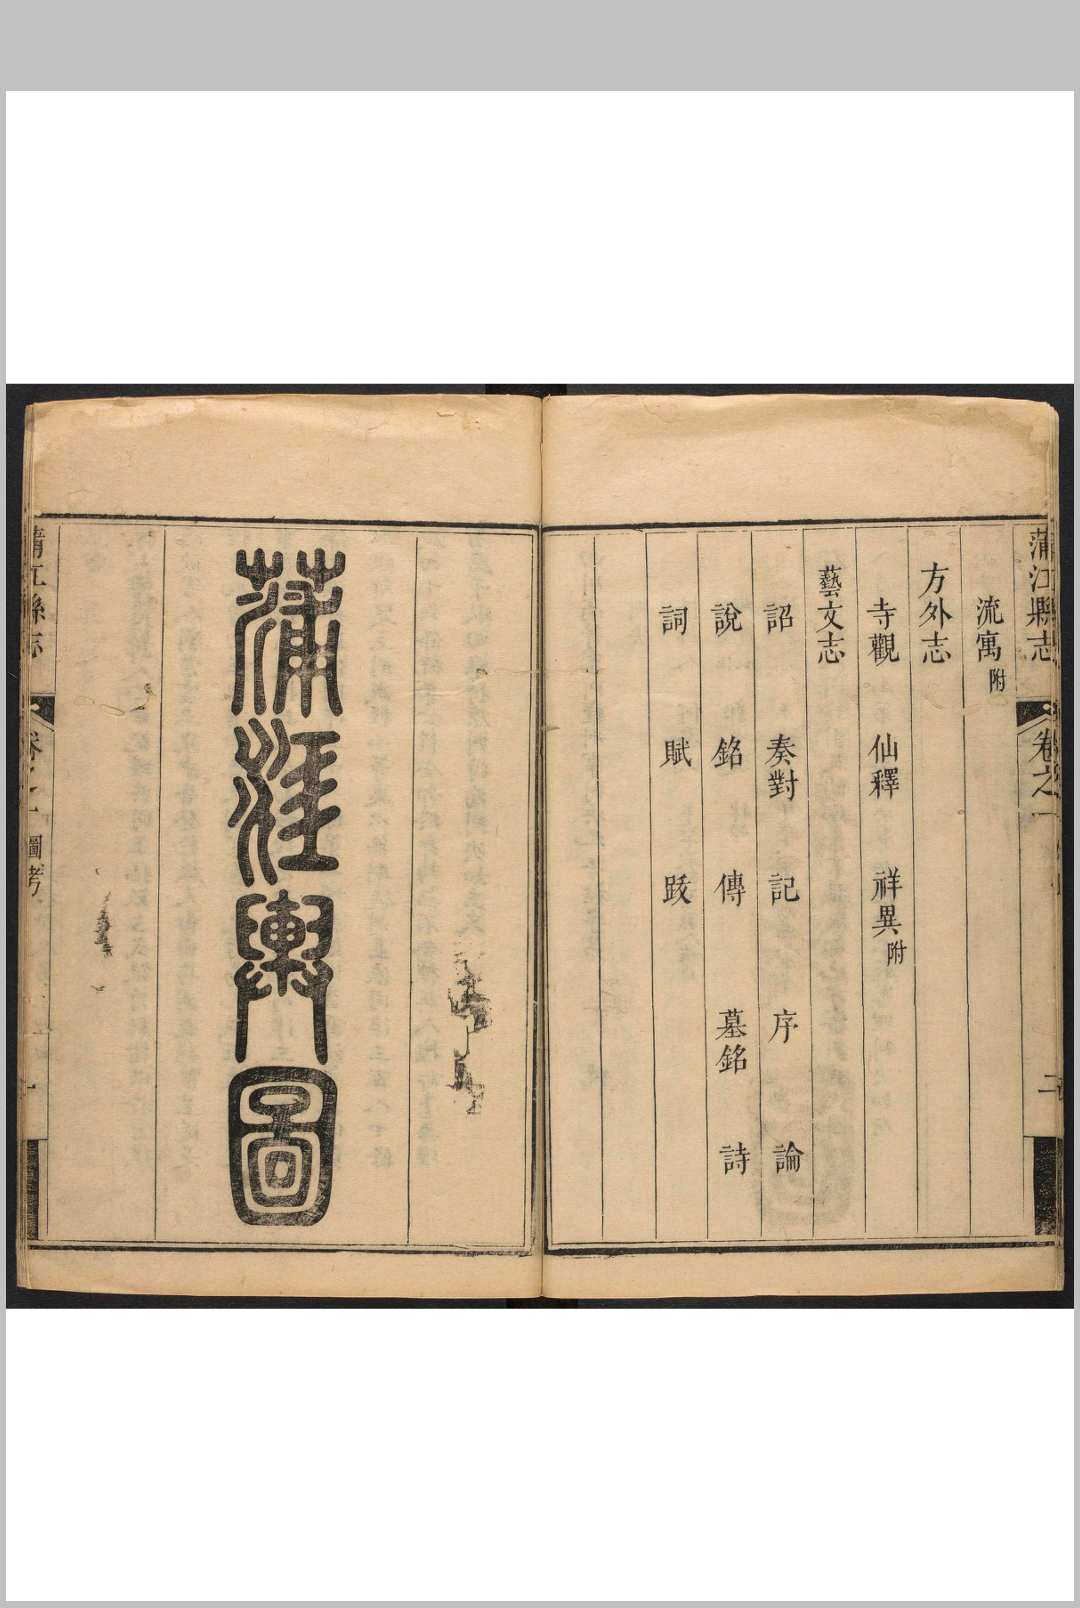 蒲江縣志 卷之一 二
流寓附
方外志
寺觀 仙釋 祥異附
藝文志
詔 奏對 記 序 論
說 銘 傳 墓銘 詩
詞 賦 跋
蒲江輿圖
蒲江縣志 卷之一 圖考 一